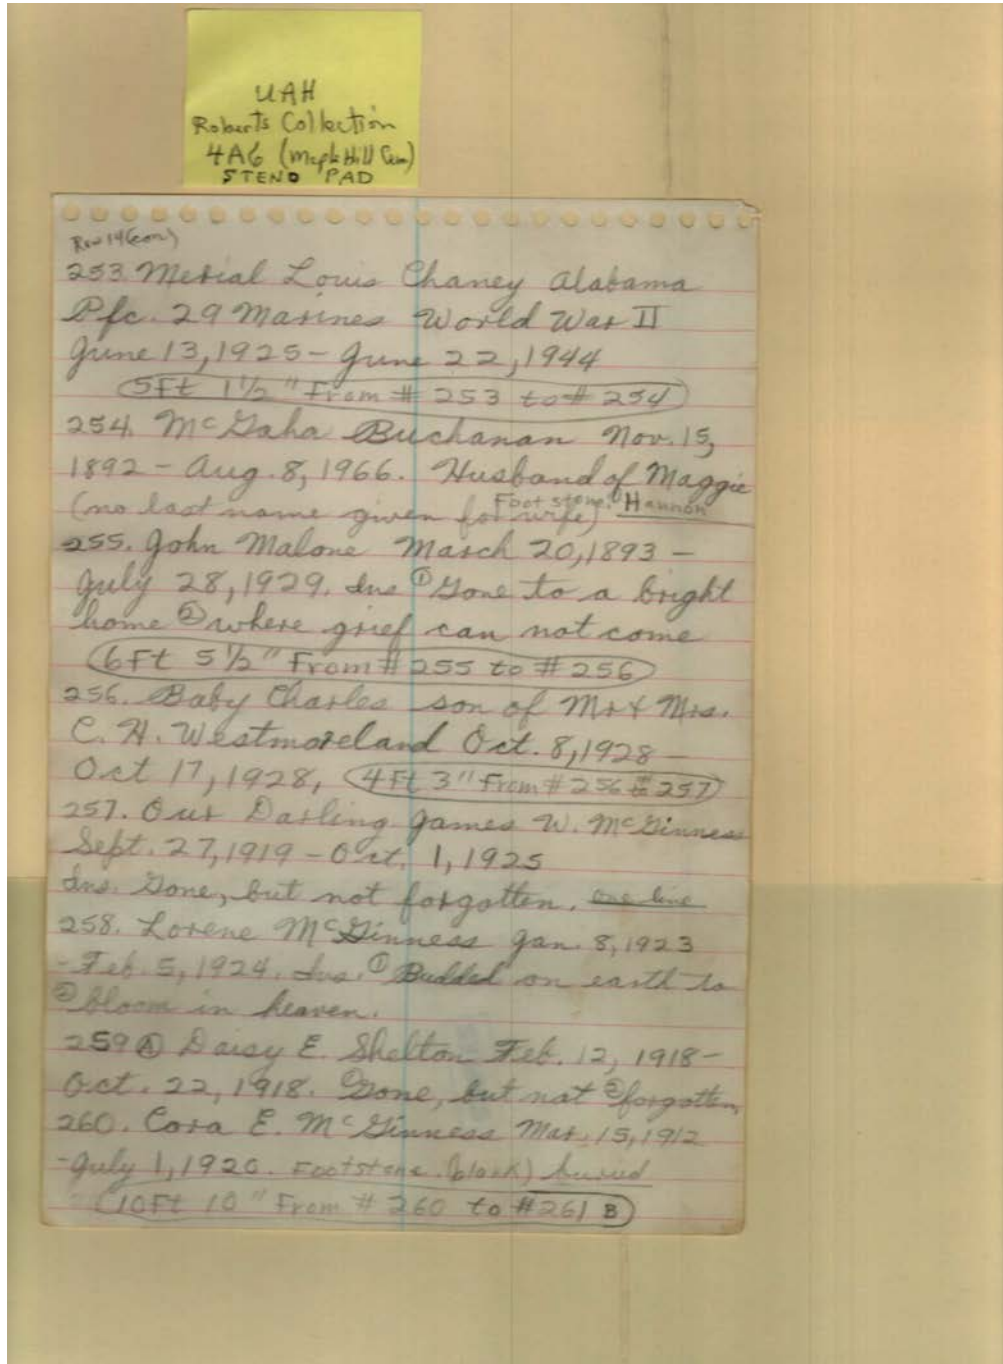 UAH
Roberts Collection
4A6 (Maple Hill Cem)
STENO PAD
Row 14 (con)
253. Merial Louis Chaney Alabama
Pfc. 29 Marines World War II
June 13, 1925 - June 22, 1944
5Ft 1 1/2" From # 253 to # 254
254. McGaha Buchanan Nov. 15,
1892 - Aug. 8, 1966. Husband of Maggie
(no last name given for wife) Foot stone. Hannon
255. John Malone March 20, 1893 -
July 28, 1929. Ins ① Gone to a bright
home ② where grief can not come
6Ft 5 1/2" From # 255 to # 256
256. Baby Charles son of Mr & Mrs.
C. H. Westmoreland Oct. 8, 1928 -
Oct 17, 1928, 4Ft 3" From # 256 to 257
257. Our Darling James W. McGinness
Sept. 27, 1919 - Oct. 1, 1925
Ins. Gone, but not forgotten. one line
258. Lorene McGinness Jan. 8, 1923
- Feb. 5, 1924. Ins. ① Budded on earth to
② bloom in heaven.
259 Ⓐ Daisy E. Shelton Feb. 12, 1918 -
Oct. 22, 1918. ① Gone, but not ② forgotten
260. Cora E. McGinness Mar. 15, 1912
- July 1, 1920. Footstone (blank) buried
10Ft 10" From # 260 to # 261 B